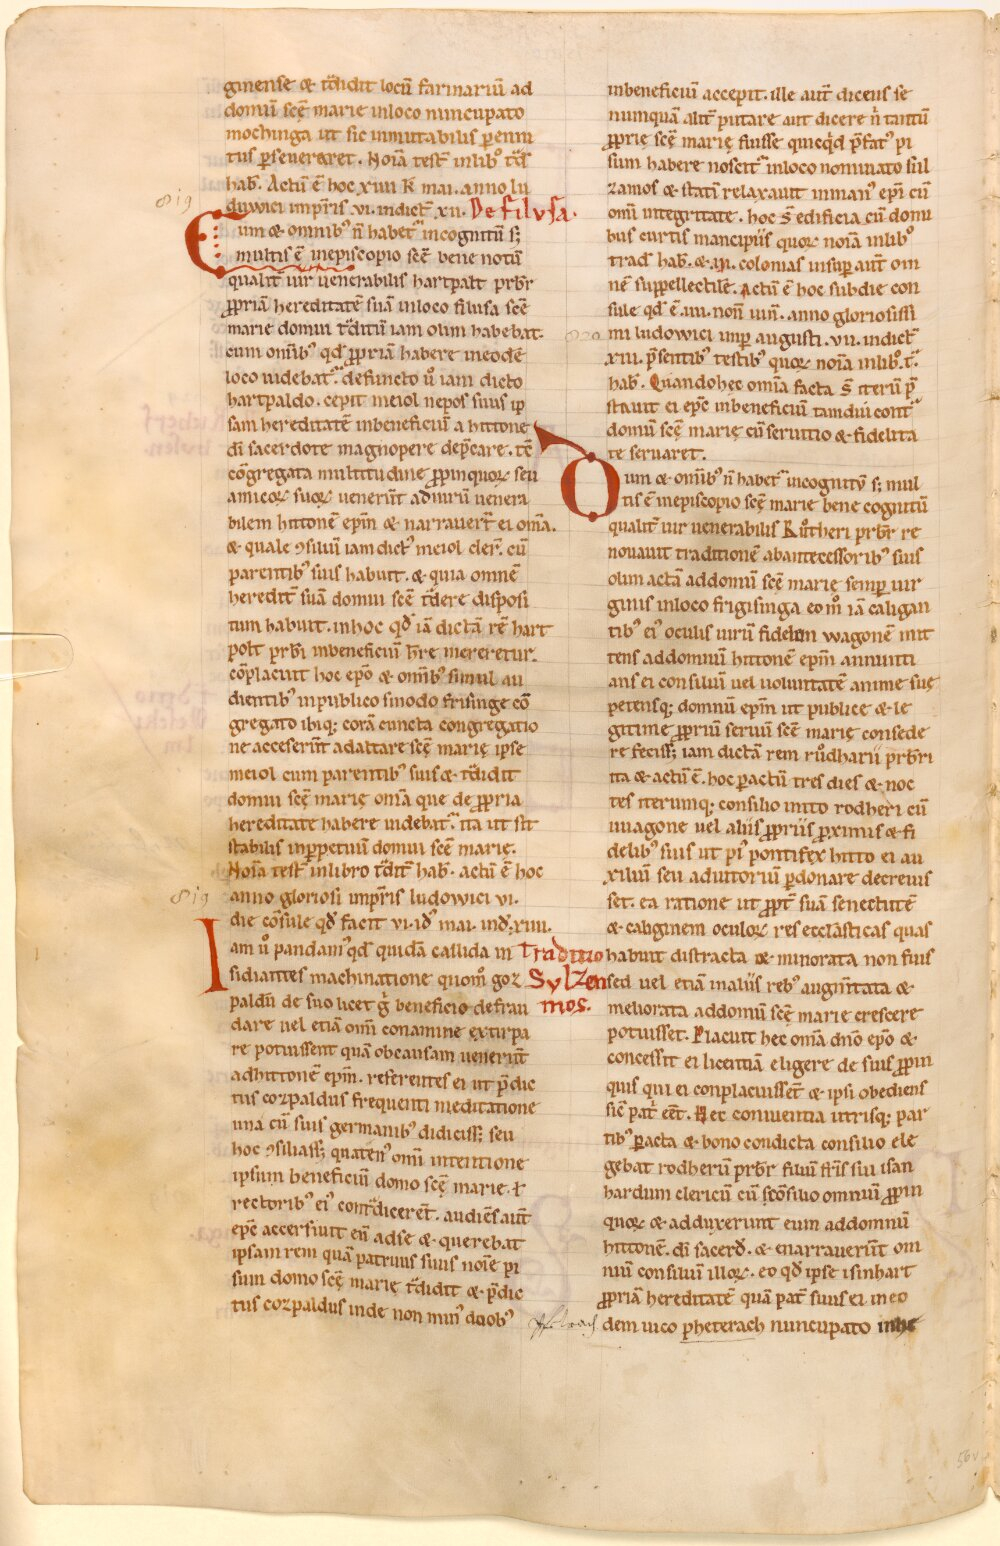 ginense & t̄didit locū farinariū ad
domū scē marie inloco nuncupato
mochinga ut sic inmutabilis ꝑenni
tus ꝑseueraret. Noīa test̄ inlibꝰ t̄d̄
hab̄. Actū ē hoc xviii k̄ mai. anno lu
duwici impr̄is .vi. indict̄ xii. De filusa.
819
Cum & omnibꝰ n̄ habet᷑ incognitū s;
multis ē inepiscopio scē bene notū
qualit̄ uir uenerabilis hartpalt prb̄r
ꝓpriā hereditatē suā inloco filusa scē
marie domui t̄ditū iam olim habebat.
cum om̄ibꝰ qd̄ ꝓpriā habere ineodē
loco uidebat᷑. defuncto u̅ iam dicto
hartpaldo. cepit meiol nepos suus ip
sam hereditatē inbeneficiū a hittone
dī sacerdote magnopere dep̄care. tc̄
cōgregata multitudine ꝓpinquoꝝ seu
amicoꝝ suoꝝ uenerūt aduirū uenera
bilem hittonē ep̄m & narrauer̄t ei om̄a.
& quale ꝯsiliū iam dict᷒ meiol cler̄. cū
parentibꝰ suis habuit. & quia omnē
heredit̄ suā domui scē t̄dere disposi
tum habuit. inhoc qd̄ iā dictā rē hart
polt prb̄i inbeneficiū h̄re mereretur.
cōplacuit hoc ep̄o & om̄ibꝰ simul au
dientibꝰ inpublico sinodo frisinge cō
gregato ibiq; corā cuncta congregatio
ne acceser̄t adaltare scē marię ipse
meiol cum parentibꝰ suis & t̄didit
domui scē marię om̄a que de ꝓpria
hereditate habere uidebat᷑. ita ut sit
stabilis inꝑpetuū domui scē marię.
Noīa test̄ inlibro t̄dit̄ hab̄. actū ē hoc
819
anno gloriosi impr̄is ludowici vi.
die cōsule qd̄ facit vi. id᷒ mai. ind̄. xiiii.
Iam u̅ pandam᷒ qd̄ quidā callida in Traditio
sidiantes machinatione quom̄ goz Sylzen
paldū de suo licet ḡ beneficio defrau mos.
dare uel etiā om̄i conamine extirpa
re potuissent quā obcausam uenerūt
adhittonē ep̄m. referentes ei ut p̄dic
tus cozpaldus frequenti meditatione
una cū suis germanibꝰ didiciss; seu
hoc ꝯsiliass; quaten᷒ om̄i intentione
ipsum beneficiū domo scę marię. ł
rectoribꝰ ei᷒ cont᷑dicerēt. audiēs aūt
ep̄c accersiuit eū adse & querebat
ipsam rem quā patruus suus noīe pi
sum domo scę marię t̄didit & p̄dic
tus cozpaldus inde non min᷒ duobꝰ
inbeneficiū accepit. ille aūt dicens se
numquā alit̄ putare aut dicere n̄ tantū
ꝓprie scē marię fuisse quicq̄d p̄fat᷒ pi
sum habere noscit᷑ inloco nominato sul
zamos & statī relaxauit inman᷒ ep̄i cū
om̄i integritate. hoc s̄ edificia cū domi
bus curtis mancipiis quoꝝ noīa inlibꝰ
trad̄ hab̄. & .iii. colonias insup̄ aūt om
nē suppellectilē. Actū ē hoc subdie con
sule qd̄ ē .iiii. non̄ iun̄. anno gloriosissi
820
mi ludowici imp̄ augusti .vii. indict̄
xiii. p̄sentibꝰ testibꝰ quoꝝ noīa inlibꝰ. t̄.
hab̄. Quandohec om̄ia facta s̄ iterū p̄
stauit ei ep̄c inbeneficiū tamdiu cont᷑
domū scē marię cū seruitio & fidelita
te seruaret.
Dum & om̄ibꝰ n̄ habet᷑ incognitū s; mul
tis ē inepiscopio scē marie bene cognitū
qualit̄ uir uenerabilis Růtheri prb̄r re
nouauit traditionē abantecessoribꝰ suis
olim actā addomū scē marię semp̄ uir
ginis inloco frigisinga eo m̊ iā caligan
tibꝰ ei᷒ oculis uirū fidelem wagonē mit
tens addomnū hittonē ep̄m annunti
ans ei consiliū uel uoluntatē anime suę
petensq; domnū ep̄m ut publice & le
gitime ꝓpriū seruū scē marię consede
re feciss; iam dictā rem růdharii prb̄ri
ita & actū ē. hoc ꝑactū tres dies & noc
tes iterumq; consilio inito rodheri cū
uuagone uel aliis ꝓpriis ꝓximis & fi
delibꝰ suis ut pī pontifex hitto ei au
xiliū seu adiutoriū ꝑdonare decreuis
set. ea ratione ut ꝓpt̄ suā senectutē
& caliginem oculoꝝ res eccl̄asticas quas
habuit distracta uel minorata non fuis
sed uel etiā inaliis rebꝰ augm̄tata &
meliorata addomū scē marie crescere
potuisset. Placuit hec om̄a dn̄o ep̄o &
concessit ei licentiā eligere de suis ꝓpin
quis qui ei conplacuissēt & ipsi obediens
sic̄ pat̄ eēt. Hec conuentia utrisq; par
tibꝰ ꝑacta & bono condicta consilio ele
gebat rodherū prb̄r filiū fr̄is sui isan
hardum clericū cū scōsilio omniū ꝓpin
quoꝝ & adduxerunt eum addomnū
hittonē. dī sacerd̄. & enarrauer̄t om
niū consiliū illoꝝ. eo qd̄ ipse isinhart
ꝓpriā hereditatē quā pat̄ suus ei ineo
dem uico pheterach nuncupato inhe
56v